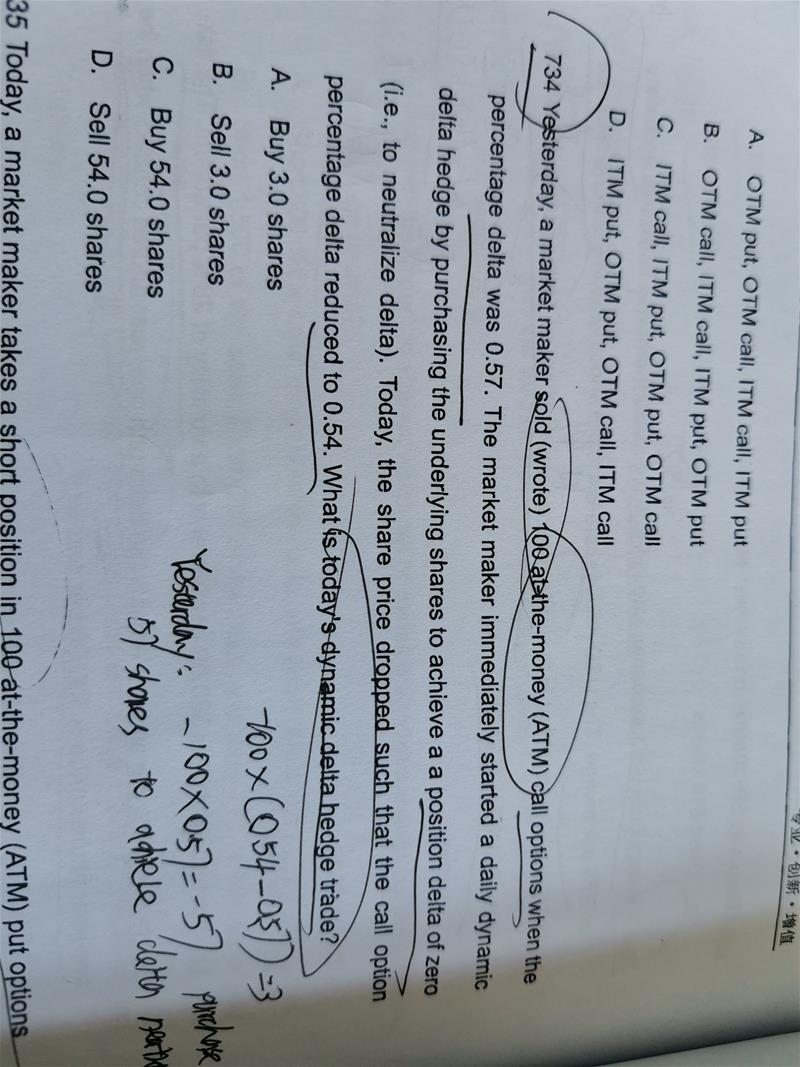 专业·创新·增值
A. OTM put, OTM call, ITM call, ITM put
B. OTM call, ITM call, ITM put, OTM put
C. ITM call, ITM put, OTM put, OTM call
D. ITM put, OTM put, OTM call, ITM call
734 Yesterday, a market maker sold (wrote) 100 at-the-money (ATM) call options when the
percentage delta was 0.57. The market maker immediately started a daily dynamic
delta hedge by purchasing the underlying shares to achieve a a position delta of zero
(i.e., to neutralize delta). Today, the share price dropped such that the call option
percentage delta reduced to 0.54. What is today's dynamic delta hedge trade?
A. Buy 3.0 shares
B. Sell 3.0 shares
C. Buy 54.0 shares
D. Sell 54.0 shares
-100×(0.54-0.57)=3
Yesterday: -100×0.57=-57 purchase
57 shares to delta
35 Today, a market maker takes a short position in 100 at-the-money (ATM) put options